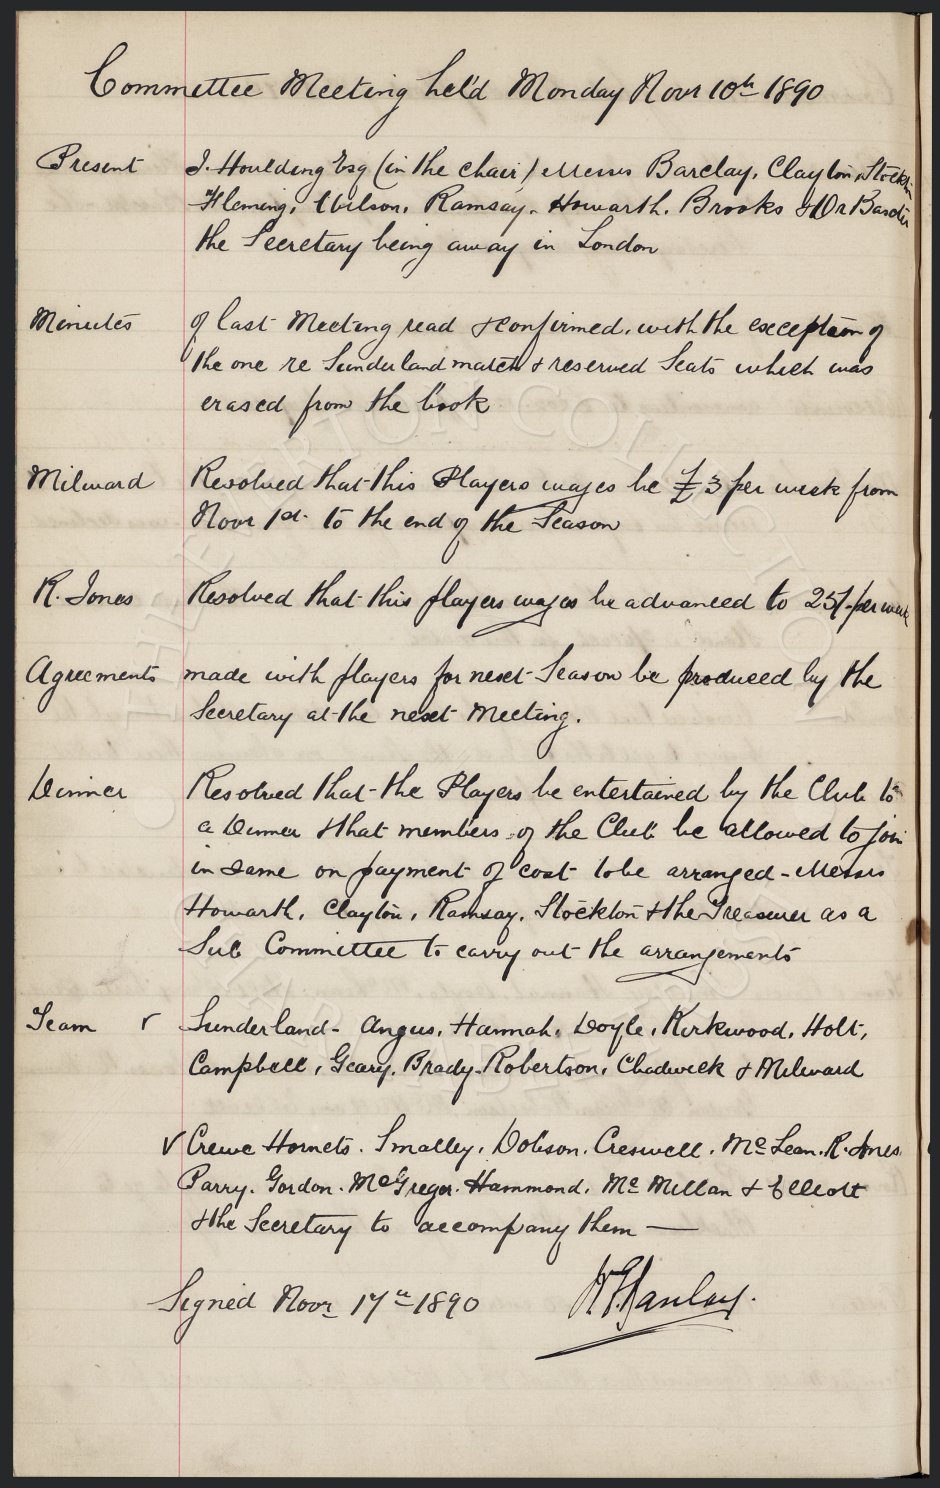 Committee Meeting held Monday Novr 10th 1890
Present J. Houlding Esq (in the chair) Messrs Barclay, Clayton, Stockton
Fleming, Wilson, Ramsay, Howarth, Brooks & Dr Baxter
the Secretary being away in London
Minutes of last Meeting read & confirmed, with the exception of
the one re Sunderland match & reserved Seats which was
erased from the book
Milward Resolved that this Players wages be £3 per week from
Novr 1st to the end of the Season
R. Jones Resolved that this players wages be advanced to 25/- per week
Agreements made with players for next Season be produced by the
Secretary at the next Meeting.
Dinner Resolved that the Players be entertained by the Club to
a Dinner & that members of the Club be allowed to join
in same on payment of cost to be arranged - Messrs
Howarth, Clayton, Ramsay, Stockton & the Treasurer as a
Sub Committee to carry out the arrangements
Team Sunderland - Angus, Hannah, Doyle, Kirkwood, Holt,
Campbell, Geary, Brady, Robertson, Chadwick & Milward
Crewe Hornets. Smalley, Dobson, Creswell, Mc Lean, R. Jones
Parry, Gordon, McGregor, Hammond, Mc Millan & Elliott
& the Secretary to accompany them —
Signed Novr 17th 1890
THE EVERTON COLLECTION